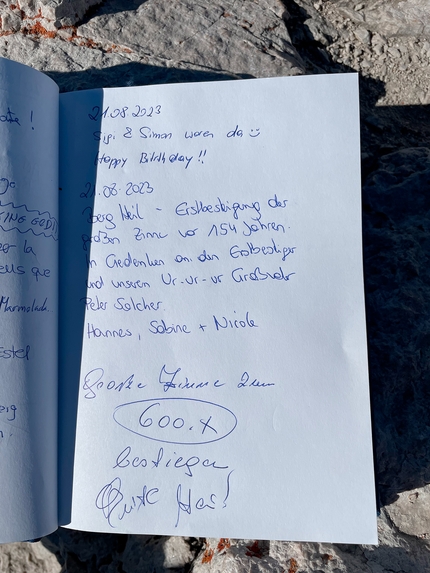 21.08.2023
Sigi & Simon waren da ☺
Happy Birthday!!
21.08.2023
Berg Heil - Erstbesteigung der
großen Zinne vor 154 Jahren.
In Gedenken an den Erstbesteiger
und unseren Ur-ur-ur Großvater
Peter Salcher
Hannes, Sabine + Nicole
Große Zinne zum
600.x
bestiegen
la
que
Marmolada